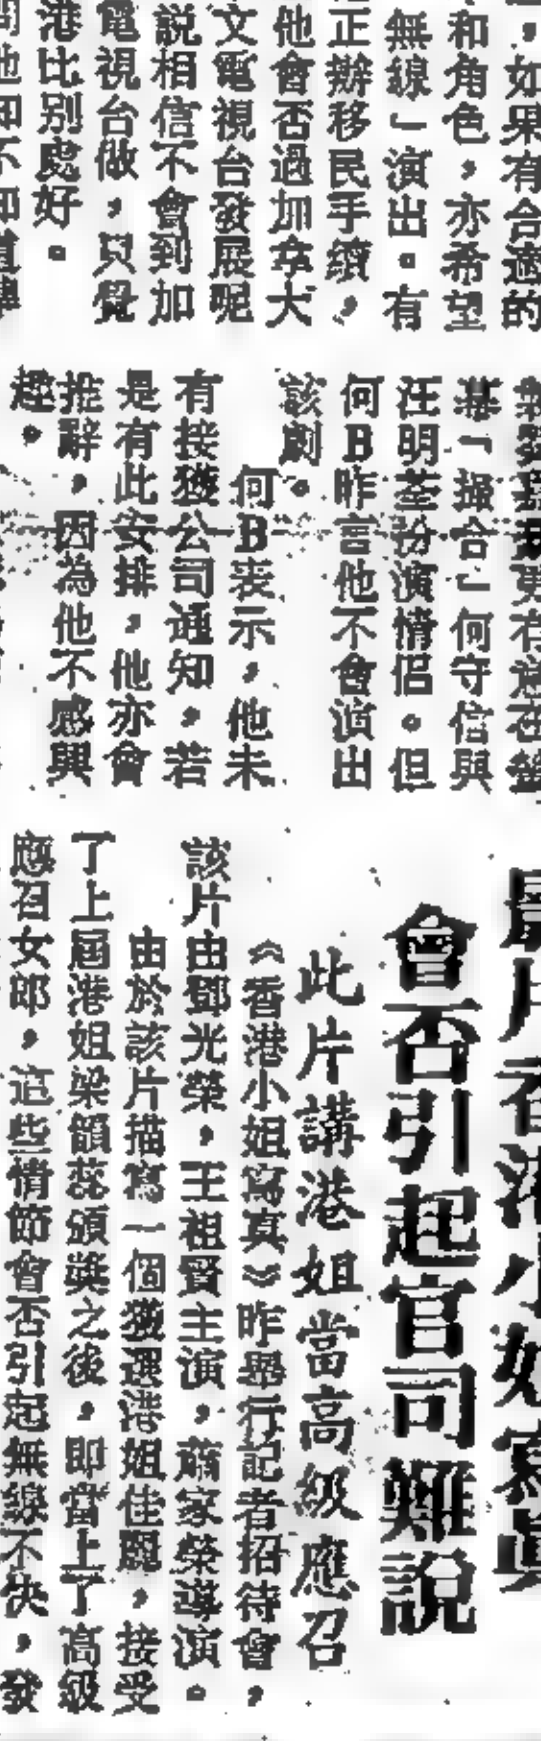 ，如果有合適的
和角色，亦希望
無線」演出。有
正辦移民手續，
他會否過加拿大
文電視台發展呢
説相信不會到加
電視台做，只覺
港比别處好。
「撮合」何守信與
汪明荃扮演情侶。但
何B昨言他不會演出
該劇。
何B表示，他未
有接獲公司通知，若
是有此安排，他亦會
推辭，因為他不感興
趣。
影片香港小姐寫真
會否引起官司難説
此片講港姐當高級應召
《香港小姐寫真》昨舉行記者招待會，
該片由鄧光榮，王祖賢主演，蕭家榮導演。
由於該片描寫一個獲選港姐佳麗，接受
了上屆港姐梁韻蕊頒獎之後，即當上了高級
應召女郎，這些情節會否引起無線不快，發